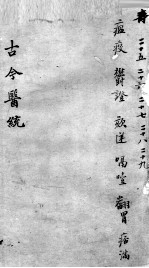 二十五 二十六 二十七 二十八 二十九
瘟疫 鬱證 欬逆 噎 翻胃 痞滿
古今醫統